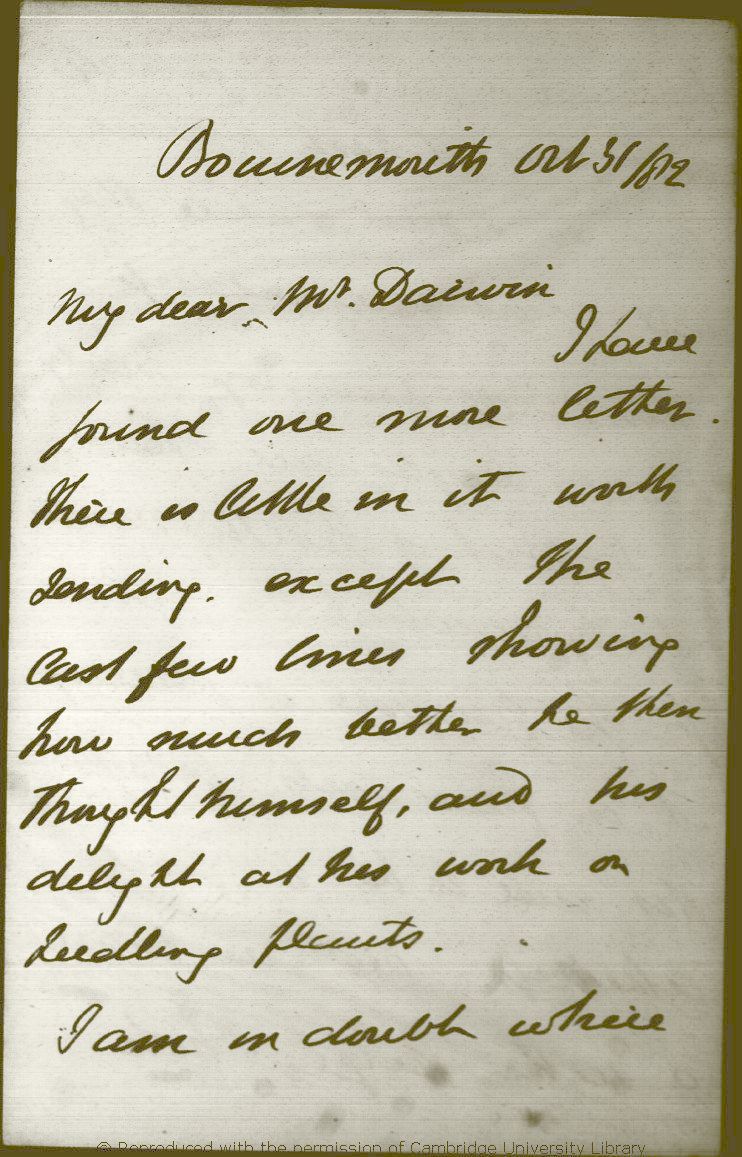 Bournemouth Oct 31/82
My dear Mr. Darwin
I have
found one more letter.
There is little in it worth
sending, except the
last few lines showing
how much better he then
thought himself, and his
delight at his work on
seedling plants.
I am in doubt where
© Reproduced with the permission of Cambridge University Library